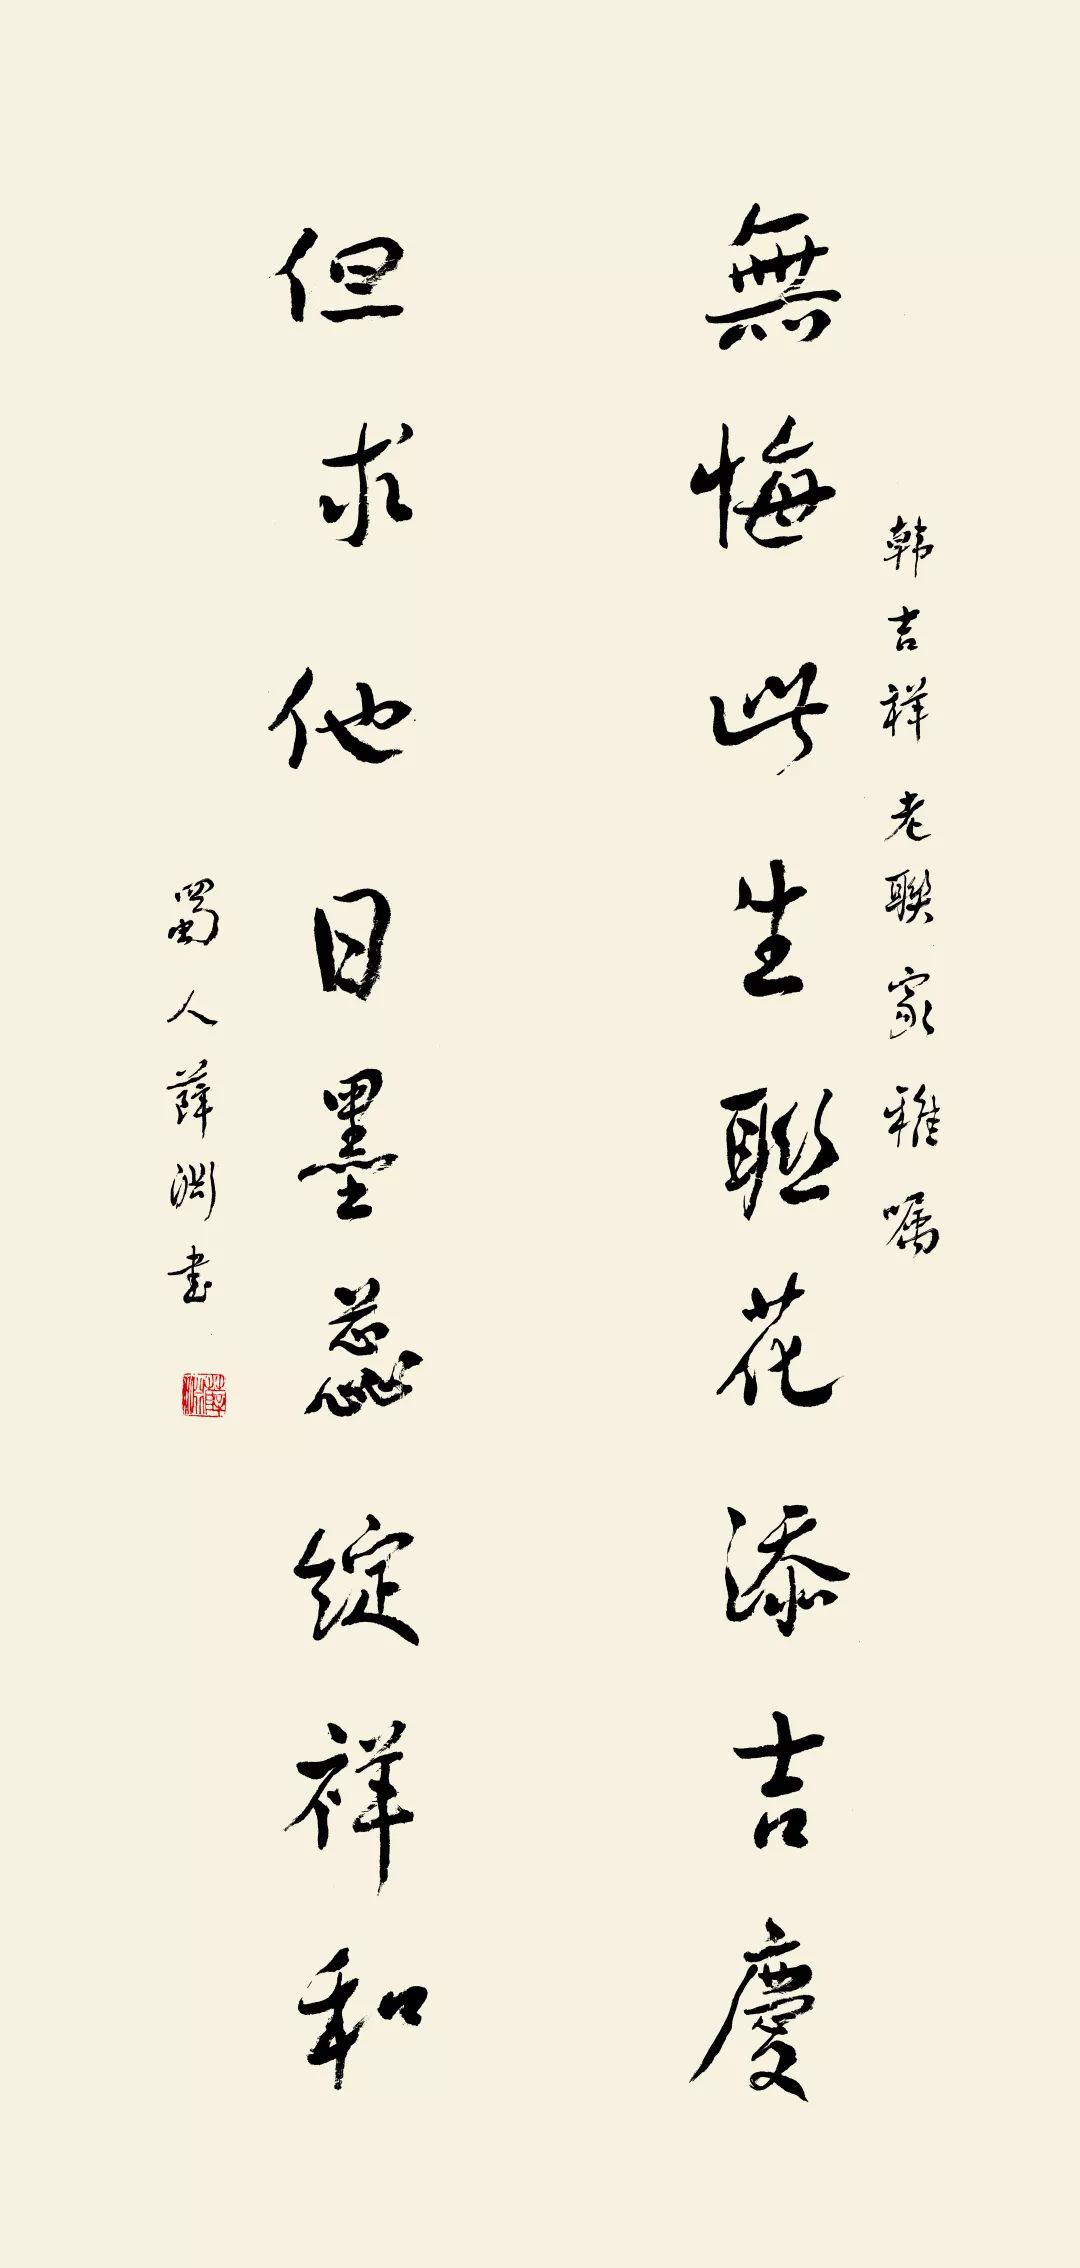 韩吉祥老聯家雅嘱
無悔此生聯花添吉慶
但求他日墨蕊綻祥和
蜀人薛渊书
薛渊